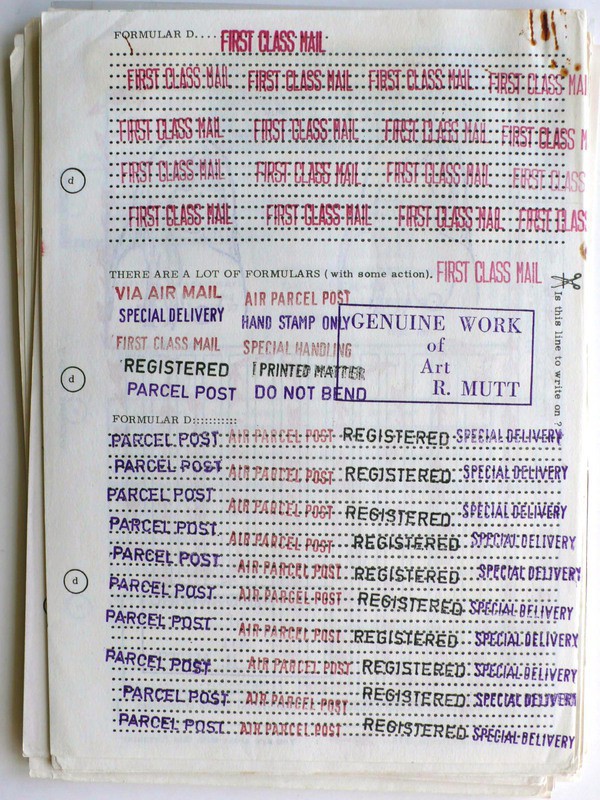 FORMULAR D.... FIRST CLASS MAIL
FIRST CLASS MAIL FIRST CLASS MAIL FIRST CLASS MAIL FIRST CLASS MAI
FIRST CLASS MAIL FIRST CLASS MAIL FIRST CLASS MAIL FIRST CLASS M
d
FIRST CLASS MAIL FIRST CLASS MAIL FIRST CLASS MAIL FIRST CLASS
FIRST CLASS MAIL FIRST CLASS MAIL FIRST CLASS MAIL FIRST CLASS
THERE ARE A LOT OF FORMULARS (with some action). FIRST CLASS MAIL
VIA AIR MAIL AIR PARCEL POST
SPECIAL DELIVERY HAND STAMP ONLY
FIRST CLASS MAIL SPECIAL HANDLING
REGISTERED PRINTED MATTER
PARCEL POST DO NOT BEND
GENUINE WORK
of
Art
R. MUTT
Is this line to write on ?
d
FORMULAR D:::::::::::
PARCEL POST AIR PARCEL POST REGISTERED SPECIAL DELIVERY
PARCEL POST AIR PARCEL POST REGISTERED SPECIAL DELIVERY
PARCEL POST AIR PARCEL POST REGISTERED SPECIAL DELIVERY
PARCEL POST AIR PARCEL POST REGISTERED SPECIAL DELIVERY
PARCEL POST AIR PARCEL POST REGISTERED SPECIAL DELIVERY
d
PARCEL POST AIR PARCEL POST REGISTERED SPECIAL DELIVERY
PARCEL POST AIR PARCEL POST REGISTERED SPECIAL DELIVERY
PARCEL POST AIR PARCEL POST REGISTERED SPECIAL DELIVERY
PARCEL POST AIR PARCEL POST REGISTERED SPECIAL DELIVERY
PARCEL POST AIR PARCEL POST REGISTERED SPECIAL DELIVERY